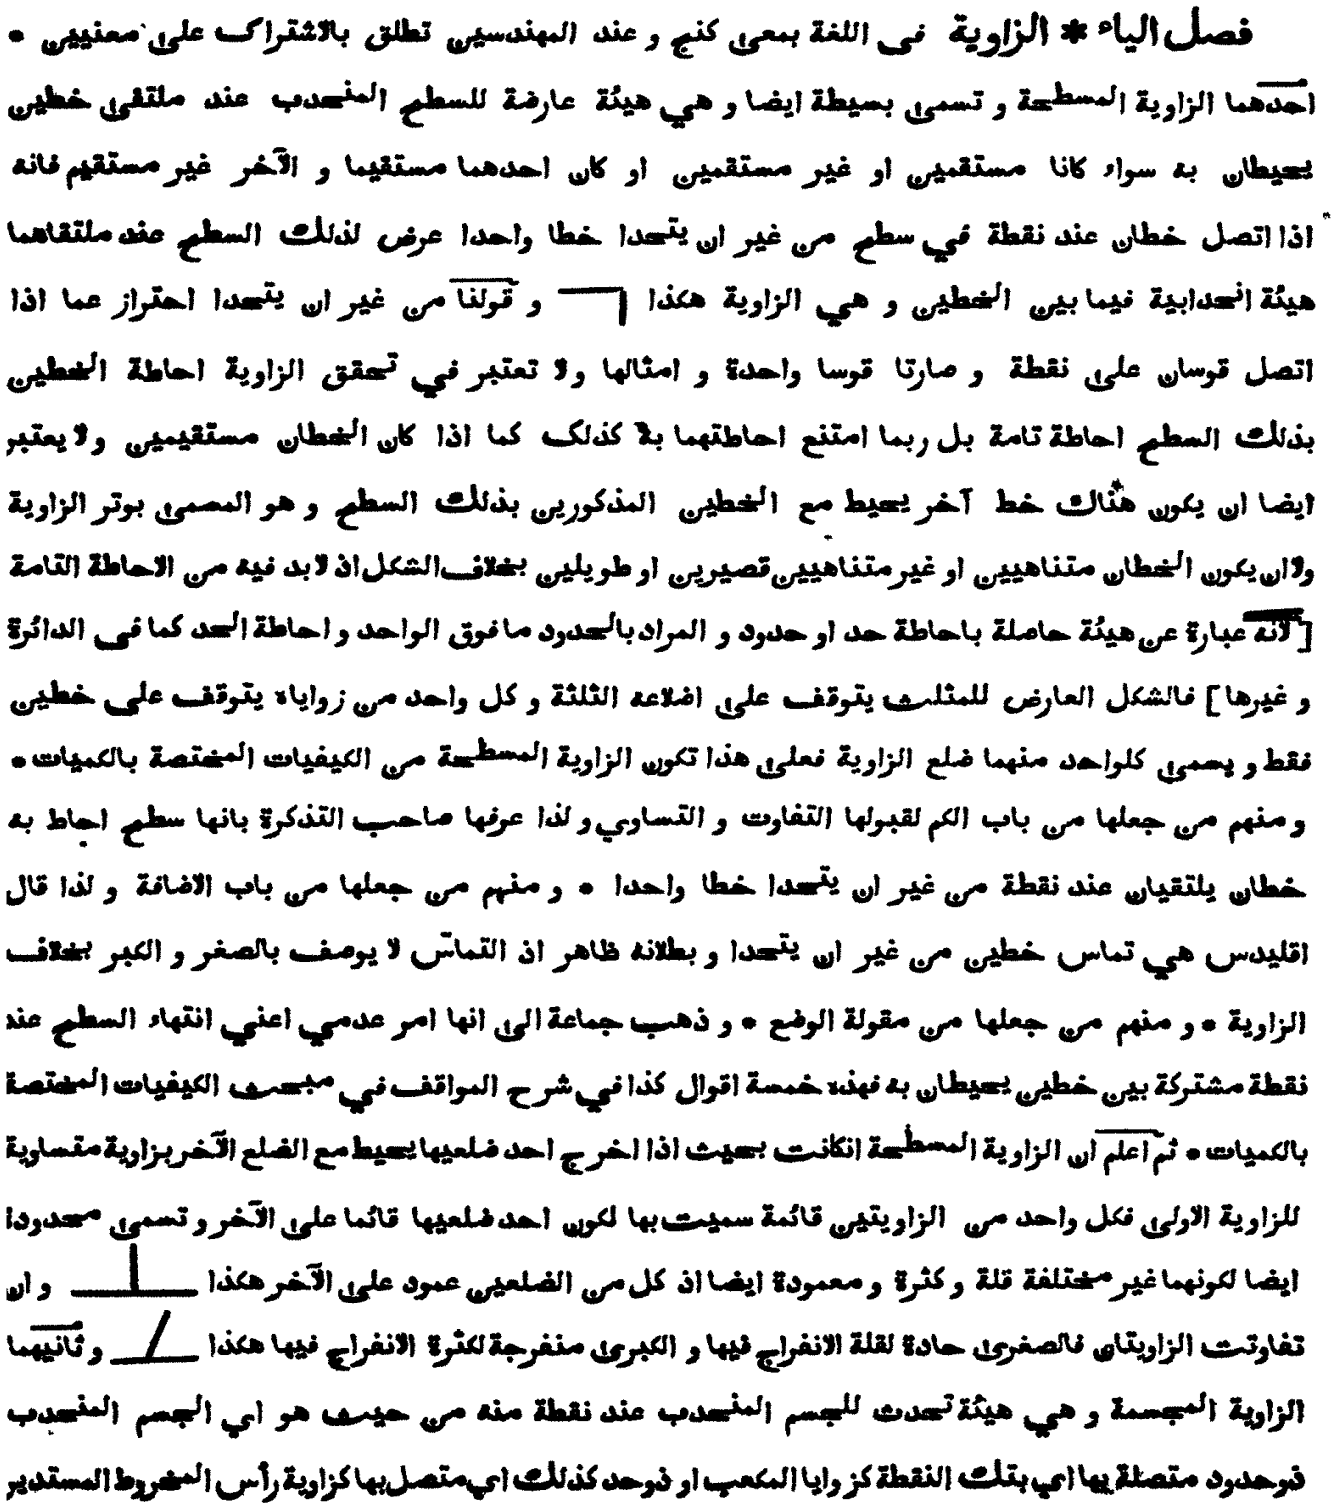 فصل الياء * الزاوية فى اللغة بمعنى كنج و عند المهندسين تطلق بالاشتراك على معنيين •
احدهما الزاوية المسطحة و تسمى بسيطة ايضا و هي هيئة عارضة للسطح المنحدب عند ملتقى خطين
يحيطان به سواء كانا مستقمين او غير مستقمين او كان احدهما مستقيما و الآخر غير مستقيم فانه
اذا اتصل خطان عند نقطة في سطح من غير ان يتحدا خطا واحدا عرض لذلك السطح عند ملتقاهما
هيئة انحدابية فيما بين الخطين و هي الزاوية هكذا و قولنا من غير ان يتحدا احتراز عما اذا
اتصل قوسان على نقطة و صارتا قوسا واحدة و امثالها و لا تعتبر في تحقق الزاوية احاطة الخطين
بذلك السطح احاطة تامة بل ربما امتنع احاطتهما بلا كذلك كما اذا كان الخطان مستقيمين و لا يعتبر
ايضا ان يكون هناك خط آخر يحيط مع الخطين المذكورين بذلك السطح و هو المصمى بوتر الزاوية
ولا ان يكون الخطان متناهيين او غير متناهيين قصيرين او طويلين بخلاف الشكل اذ لا بد فيه من الاحاطة التامة
[ لانه عبارة عن هيئة حاصلة باحاطة حد او حدود و المراد بالحدود ما فوق الواحد و احاطة الحد كما فى الدائرة
و غيرها ] فالشكل العارض للمثلث يتوقف على اضلاعه الثلثة و كل واحد من زواياه يتوقف على خطين
فقط و يسمى كلواحد منهما ضلع الزاوية فعلى هذا تكون الزاوية المسطحة من الكيفيات المختصة بالكميات •
و منهم من جعلها من باب الكم لقبولها التفاوت و التساوي و لذا عرفها صاحب التذكرة بانها سطح احاط به
خطان يلتقيان عند نقطة من غير ان يتحدا خطا واحدا • و منهم من جعلها من باب الاضافة و لذا قال
اقليدس هي تماس خطين من غير ان يتحدا و بطلانه ظاهر اذ التماس لا يوصف بالصغر و الكبر بخلاف
الزاوية • و منهم من جعلها من مقولة الوضع • و ذهب جماعة الى انها امر عدمي اعني انتهاء السطح عند
نقطة مشتركة بين خطين يحيطان به فهذه خمسة اقوال كذا في شرح المواقف في مبحث الكيفيات المختصة
بالكميات • ثم اعلم ان الزاوية المسطحة انكانت بحيث اذا اخرج احد ضلعيها يحيط مع الضلع الآخر بزاوية متساوية
للزاوية الاولى فكل واحد من الزاويتين قائمة سميت بها لكون احد ضلعيها قائما على الآخر و تسمى محدودا
ايضا لكونهما غير مختلفة قلة و كثرة و معمودة ايضا اذ كل من الضلعين عمود على الآخر هكذا و ان
تفاوتت الزاويتان فالصغرى حادة لقلة الانفراج فيها و الكبرى منفرجة لكثرة الانفراج فيها هكذا و ثانيهما
الزاوية المجسمة و هي هيئة تحدث للجسم المنحدب عند نقطة منه من حيث هو اي الجسم المنحدب
ذوحدود متصلة بها اي بتلك النقطة كزوايا المكعب او ذوحد كذلك اي متصل بها كزاوية رأس المخروط المستدير